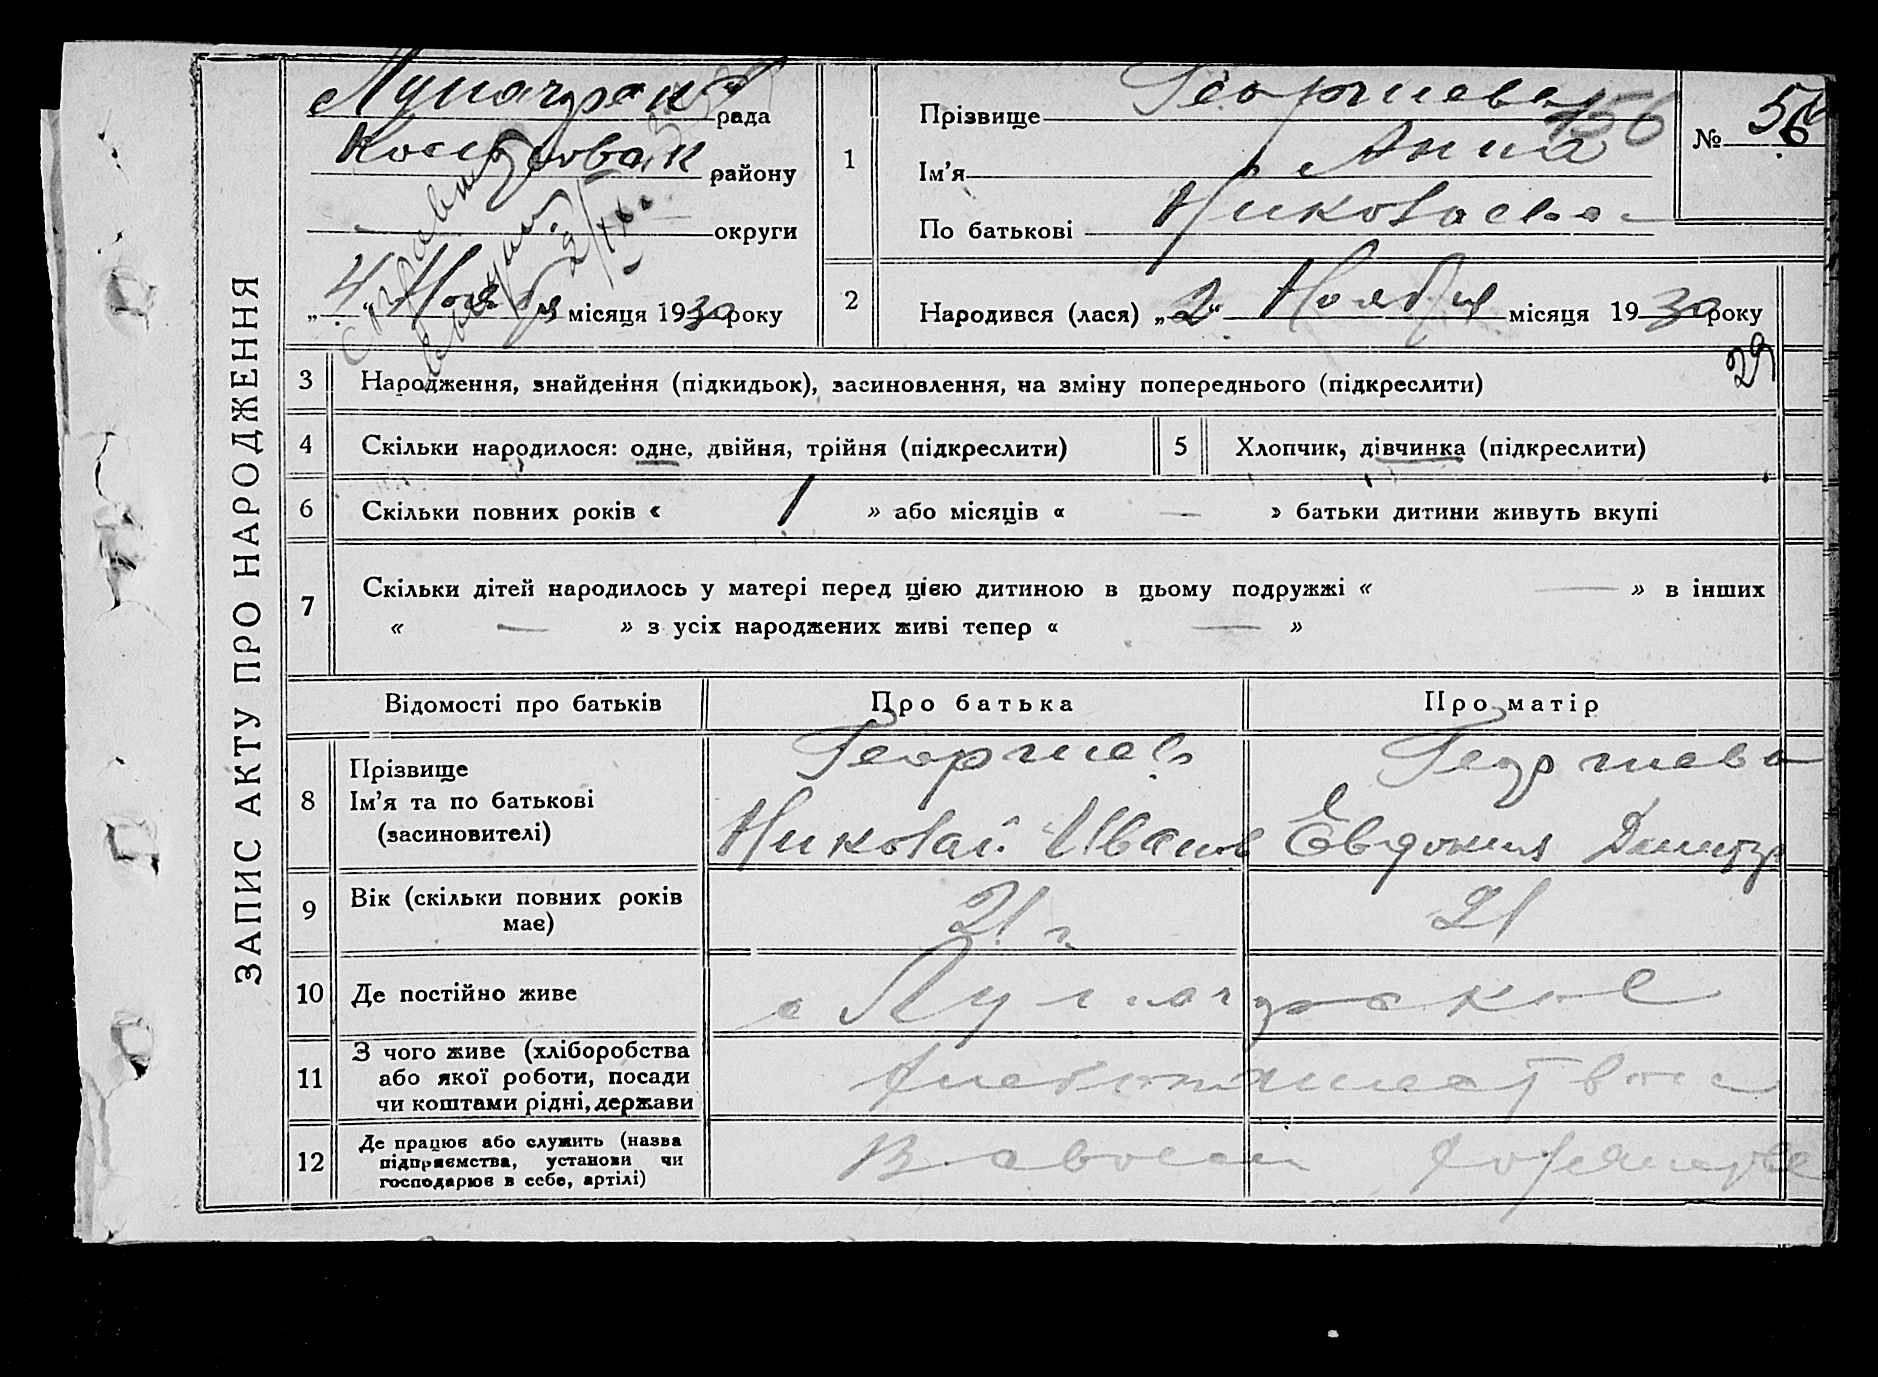 ЗАПИС АКТУ ПРО НАРОДЖЕННЯ
рада
району
округи
„4“ Ноября місяця 1930 року
1
Прізвище Георгиева
156
Ім’я Анна
По батькові Николаевна
№ 56
2
Народився (лася) „2“ Ноября місяця 1930 року
29
3
Народження, знайдення (підкидьок), засиновлення, на зміну попереднього (підкреслити)
4
Скільки народилося: одне, двійня, трійня (підкреслити)
5
Хлопчик, дівчинка (підкреслити)
6
Скільки повних років « 1 » або місяців « — » батьки дитини живуть вкупі
7
Скільки дітей народилось у матері перед цією дитиною в цьому подружжі « — » в інших
« — » з усіх народжених живі тепер « — »
Відомості про батьків
Про батька
Про матір
8
Прізвище
Ім’я та по батькові
(засиновителі)
Георгиев
Николай Иванов
Георгиева
Евдокия Дмитр
9
Вік (скільки повних років
має)
21 г.
21
10
Де постійно живе
11
З чого живе (хліборобства
або якої роботи, посади
чи коштами рідні, держави
12
Де працює або служить (назва
підприємства, установи чи
господарює в себе, артілі)
В своем